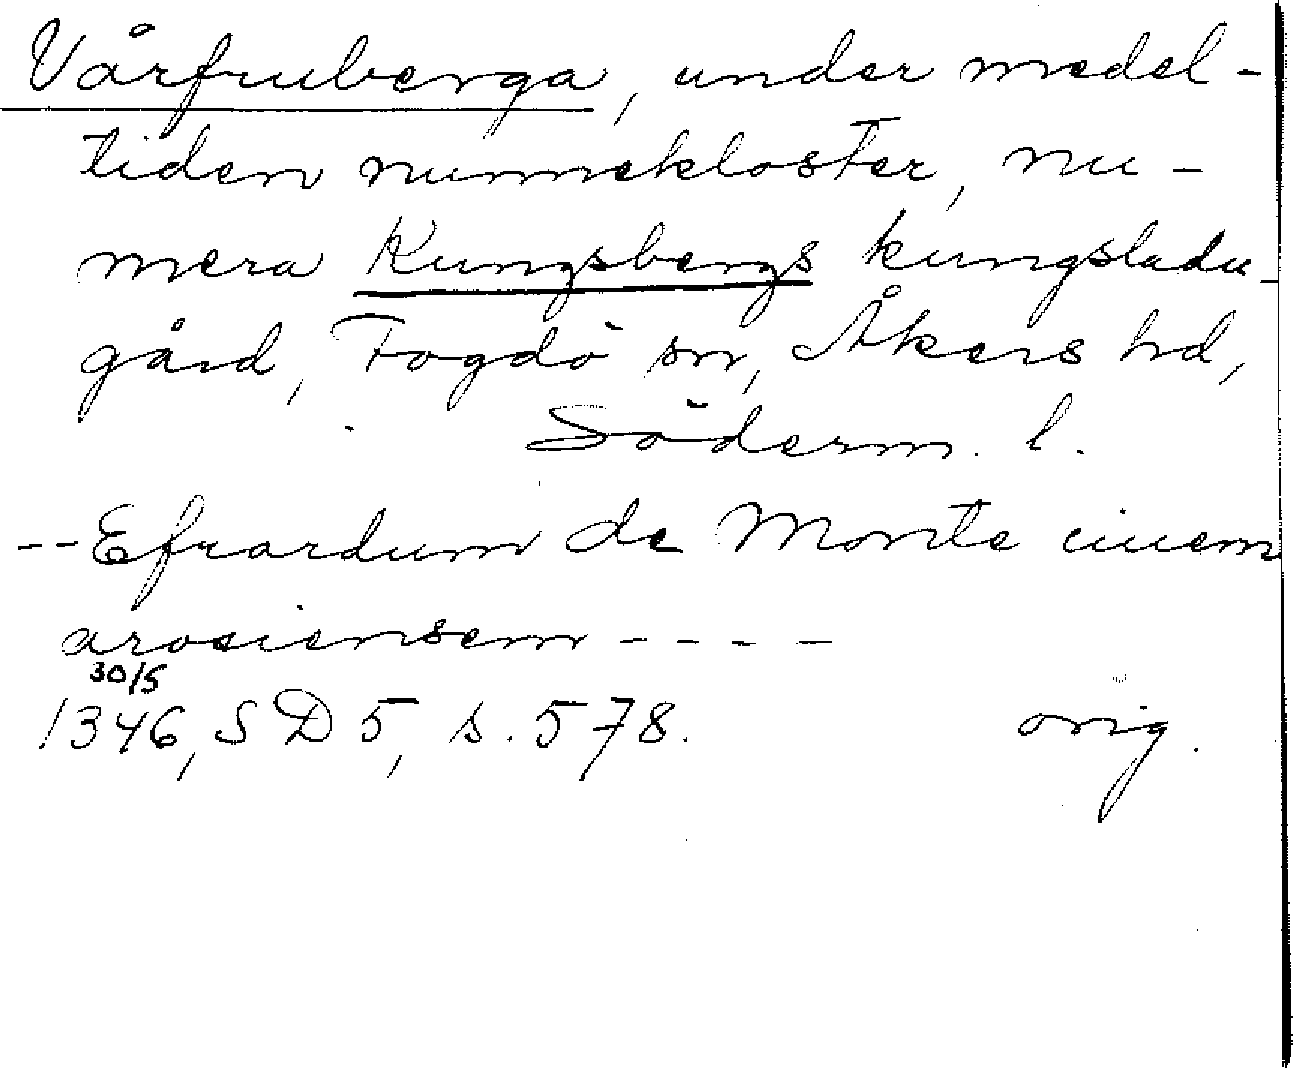 Vårfruberga, under medel-
tiden nunnekloster, nu-
mera Kungsbergs kungsladu-
gård, Fogdö sn, Åkers hd,
Söderm. l.
-- Efrardum de Monte ciuem
arosiensem ----
30/5
1346, SD 5, s. 578. orig.